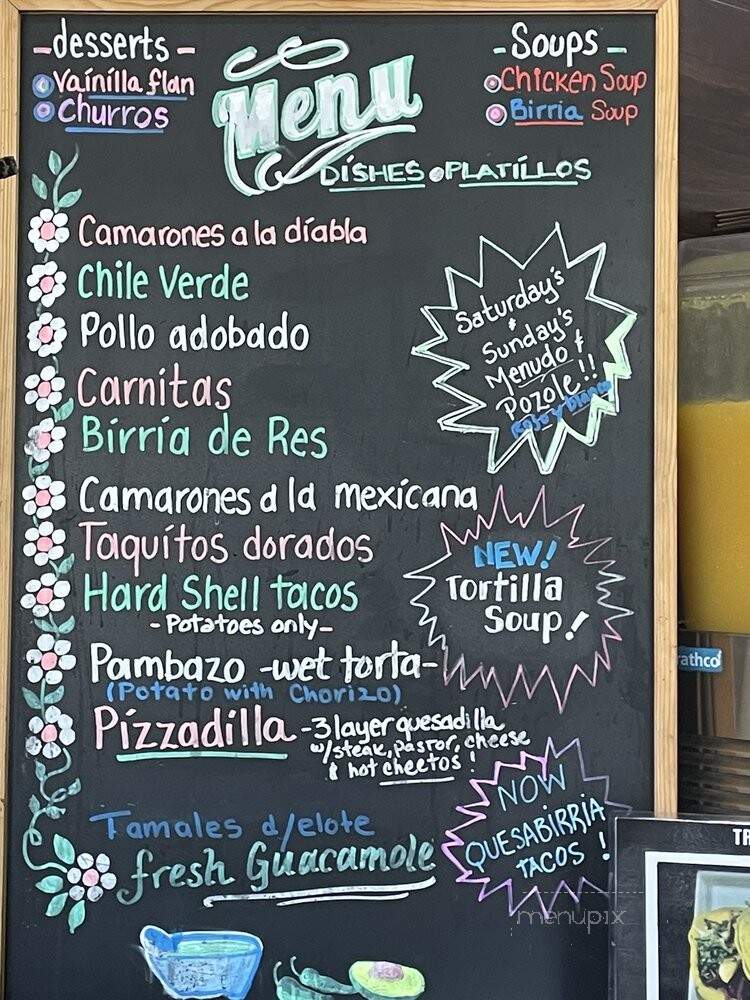 -desserts-
Vainilla flan
Churros
Menu
-Soups-
Chicken Soup
Birria Soup
DISHES • PLATILLOS
Camarones a la diabla
Chile Verde
Pollo adobado
Carnitas
Birria de Res
Camarones a la mexicana
Taquitos dorados
Hard Shell tacos
-Potatoes only-
Pambazo -wet torta-
(Potato with Chorizo)
Pizzadilla -3 layer quesadilla
w/steak, pastor, cheese
& hot cheetos!
Tamales d/elote
fresh Guacamole
Saturday's
&
Sunday's
Menudo &
Pozole!!
Rojo y blanco
NEW!
Tortilla
Soup!
NOW
QUESABIRRIA
TACOS!
menupix
rathco
TR